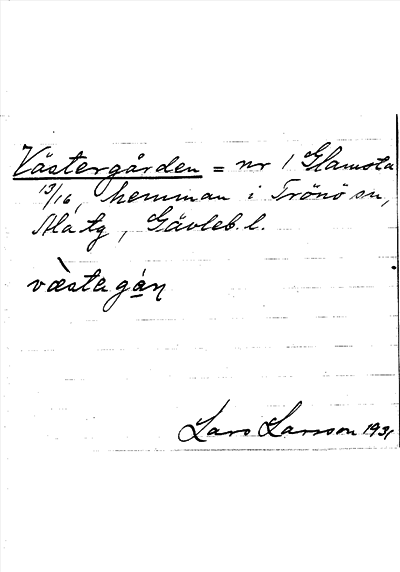 Västergården = nr 1 Glamsta
13/16, hemman i Trönö sn,
Ala tg, Gävleb. l.
væ̀sta gá̱ṇ
Lars Larsson 1931